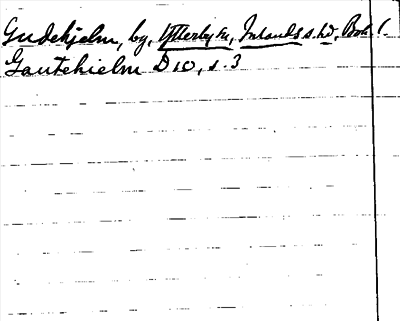 Gudehjelm, by, Ytterby sn, Inlands s. hd, Boh. l.
Gautehielm D IV, s. 3